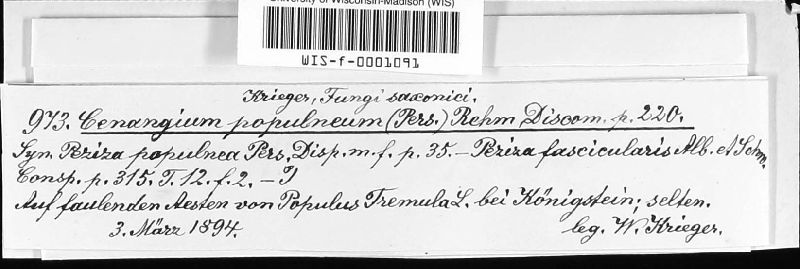 University of Wisconsin-Madison (WIS)
WIS-f-0001091
Krieger, Fungi saxonici.
973. Cenangium populneum (Pers.) Rehm Discom. p. 220.
Syn. Peziza populnea Pers. Disp. m. f. p. 35. – Peziza fascicularis Alb. et Schw.
Consp. p. 315. T. 12. f. 2. –
Auf faulenden Aesten von Populus Tremula L. bei Königstein; selten.
3. März 1894.
leg. W. Krieger.